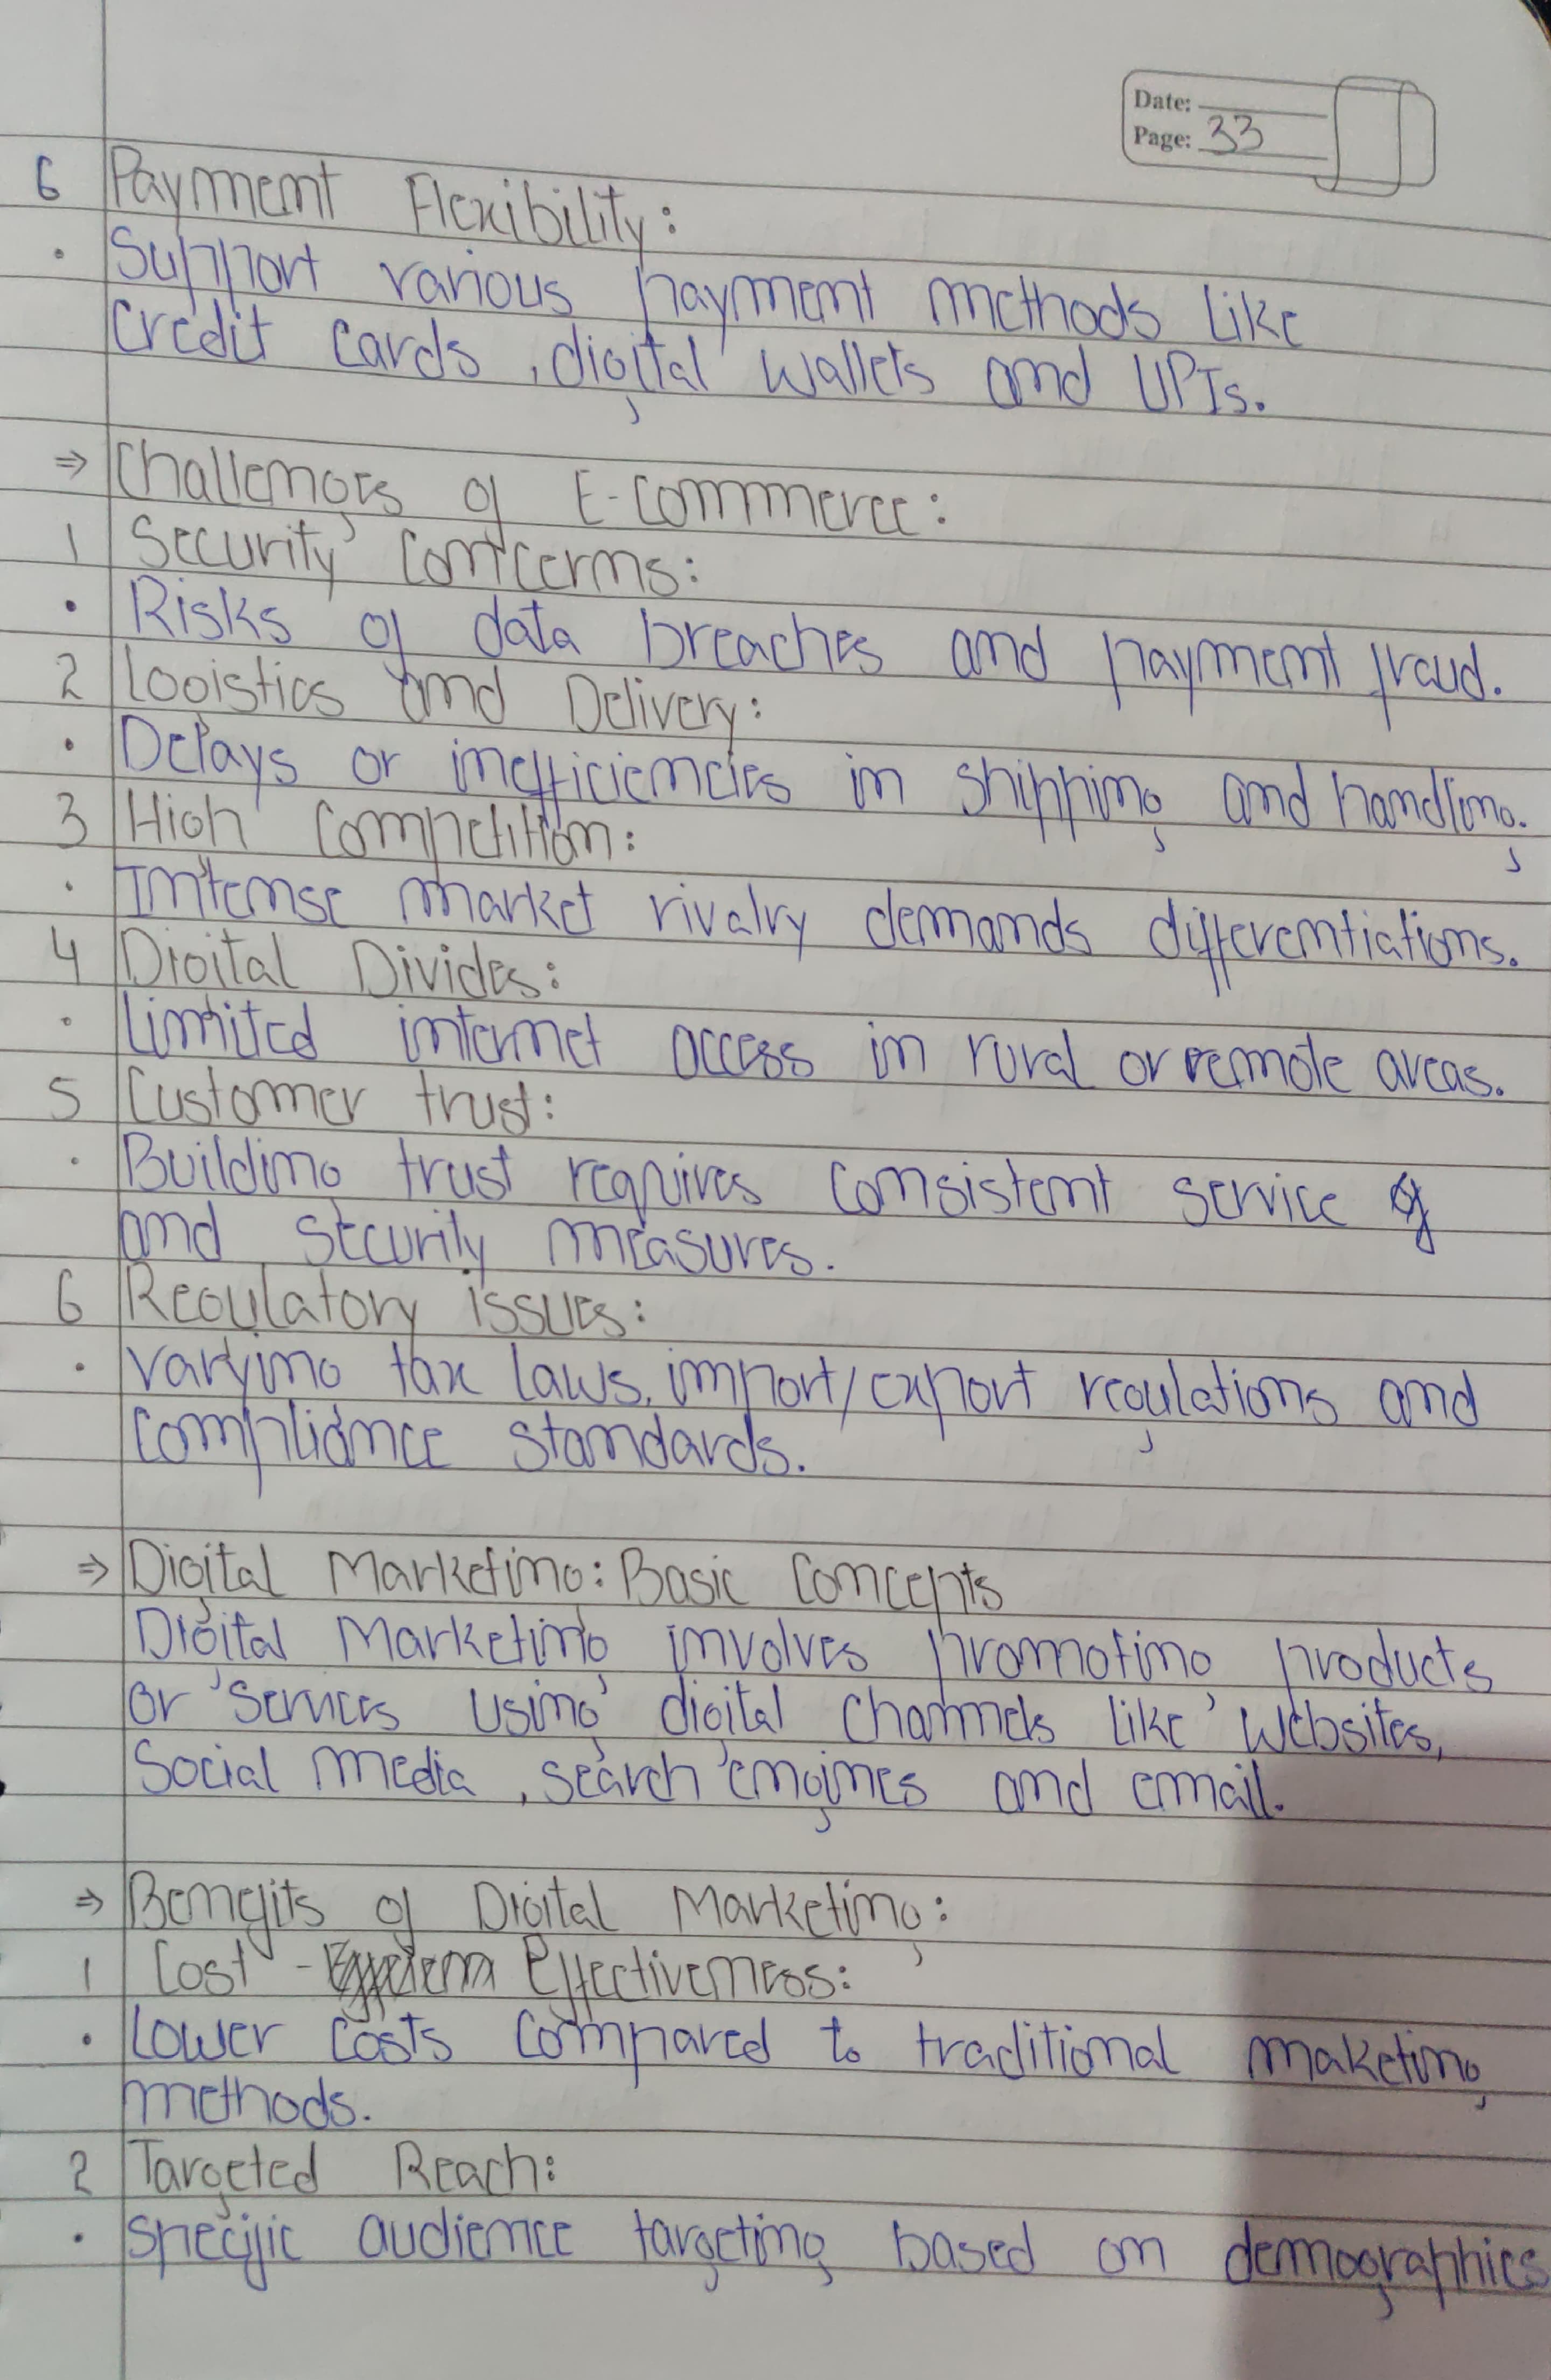 Date:
Page: 33
6 Payment Flexibility:
· Support various payment methods like
credit cards, digital wallets and UPIs.
⇒ Challenges of E-commerce:
1 Security Concerns:
· Risks of data breaches and payment fraud.
2 Logistics and Delivery:
· Delays or inefficiencies in shipping and handling.
3 High Competition:
· Intense market rivalry demands differentiations.
4 Digital Divides:
· Limited internet access in rural or remote areas.
5 Customer trust:
· Building trust requires consistent service
and security measures.
6 Regulatory issues:
· varying tax laws, import/export regulations and
compliance standards.
⇒ Digital Marketing: Basic Concepts
Digital Marketing involves promoting products
or services using digital channels like websites,
social media, search engines and email.
⇒ Benefits of Digital Marketing:
1 Cost - Effectiveness:
· Lower costs compared to traditional maketing
methods.
2 Targeted Reach:
· specific audience targeting based on demographics